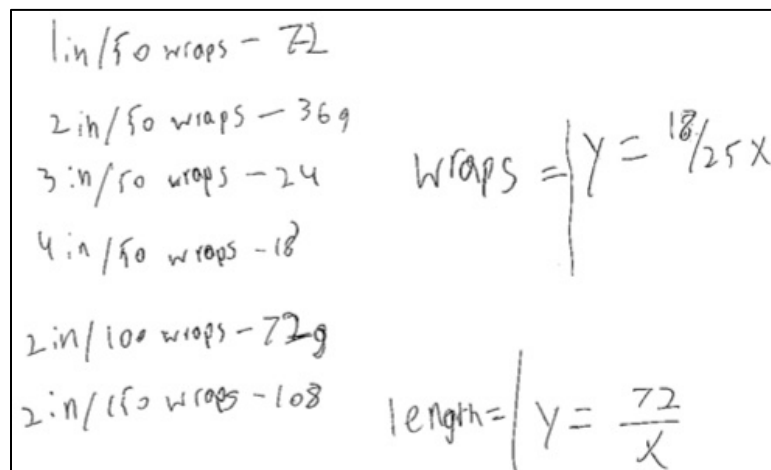 1in/50 wraps - 72
2in/50 wraps - 36g
3in/50 wraps - 24
4in/50 wraps - 18
2in/100 wraps - 72g
2in/150 wraps - 108
wraps = | y = 18/25 x
length = | y = 72/x